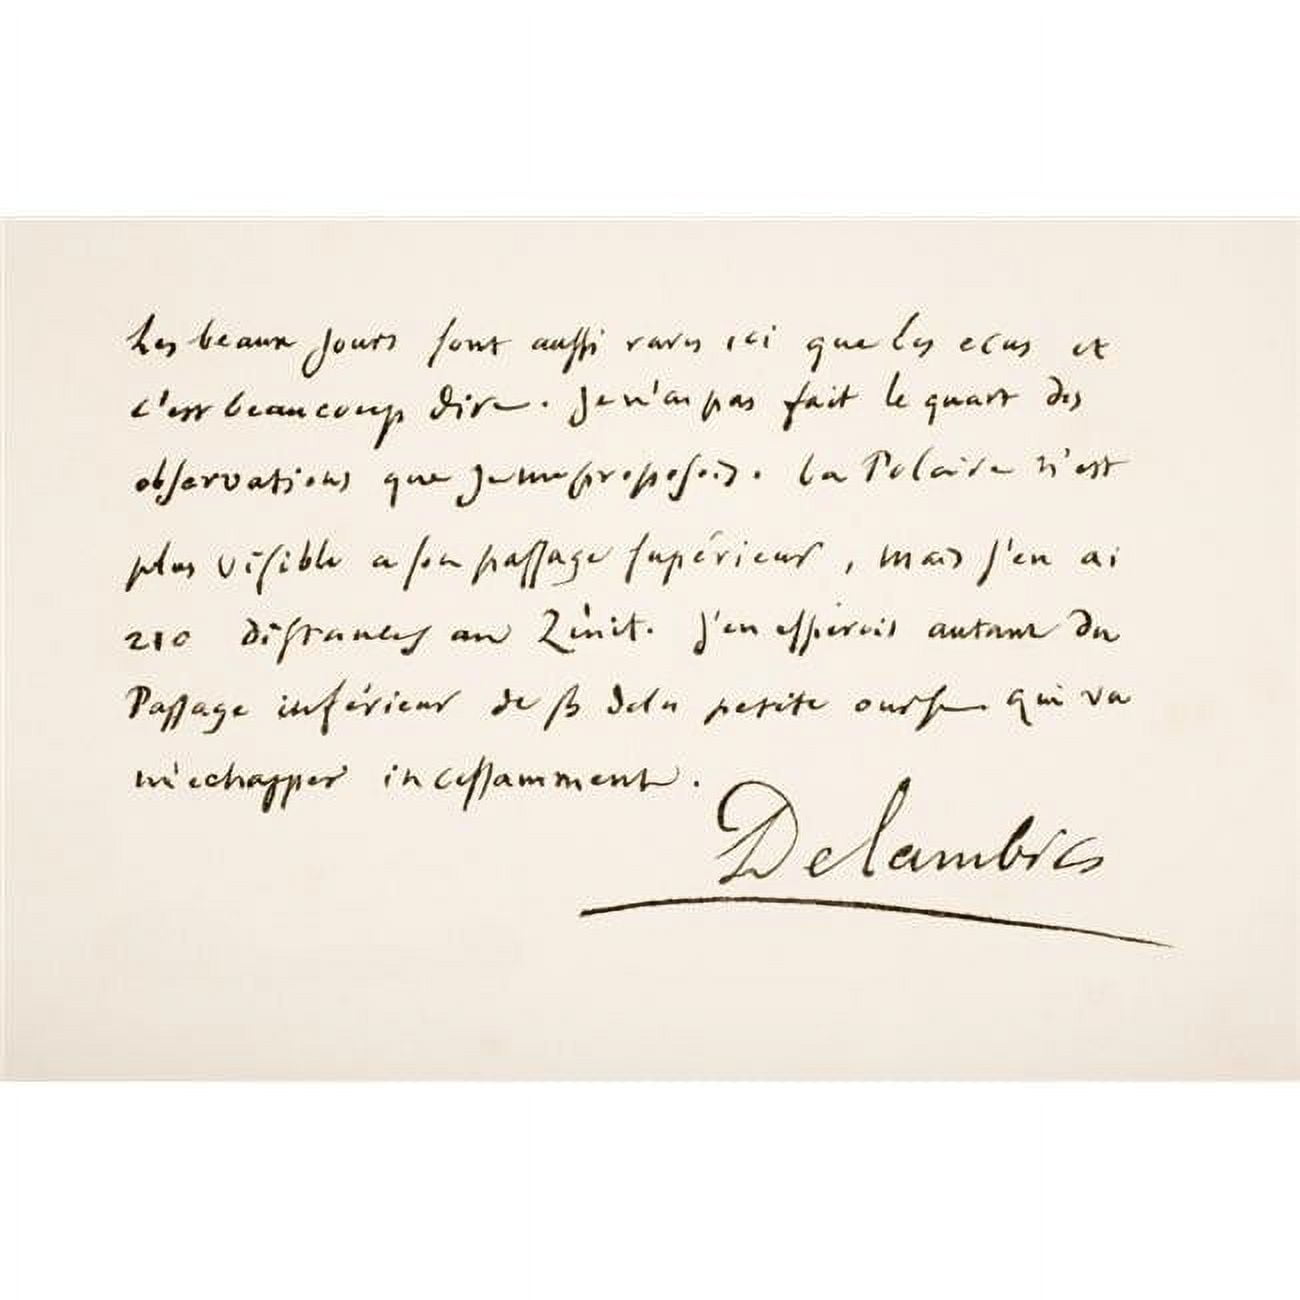 Les beaux jours sont aussi rares ici que les ecus et
c'est beaucoup dire. Je n'ai pas fait le quart des
observations que je me proposois. La Polaire n'est
plus visible a son passage supérieur, mais j'en ai
210 distances au Zénit. J'en esperois autant du
Passage inférieur de β de la petite ourse qui va
m'echapper incessamment.
Delambre